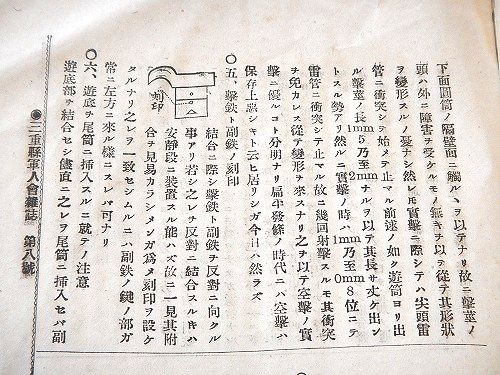 下面圓筒ノ隔壁面ニ觸ルヽヲ以テナリ故ニ擊莖ノ
頭ハ外ニ障害ヲ受クルモノ無キヲ以テ從テ其形狀
ヲ變形スルノ憂ナシ然レモ實擊ニ際シテハ尖頭雷
管ニ衝突シヲ始メテ止マル前述ノ如ク遊筒ヨリ出
ル擊莖ノ長1mm5乃至2mmナルヲ以テ其長サ丈ケ出ン
トスル勢アリ然ルニ實擊ノ時ハ1mm乃至0mm8位ニテ
雷管ニ衝突シテ止マル故ニ幾回射擊スルモ其衝突
ヲ免カレス從テ變形ヲ來スナリ之ヲ以テ空擊ノ實
擊ニ優ルコト分明ナリ扁平發條ノ時代ニハ空擊ハ
保存上惡シキト云ヒ居リシガ今日ハ然ラズ
〇五、擊鉄ト副鉄ノ刻印
刻印
結合ニ際シ擊鉄ト副鉄ヲ反對ニ向クル
事アリ若シ之レヲ反對ニ結合スルキハ
安靜段ニ裝置スル能ハズ故ニ一見其附
合ヲ見易カランメンガ爲メ刻印ヲ設ケ
タルナリ之レヲ一致セシムルニハ副鉄ノ鍵ノ部ガ
常ニ左方ニ來ル樣ニスレバ可ナリ
〇六、遊底ヲ尾筒ニ挿入スルニ就テノ注意
遊底部ヲ結合セシ儘直ニ之レヲ尾筒ニ挿入セバ副
●三重縣軍人會雜誌 第八號